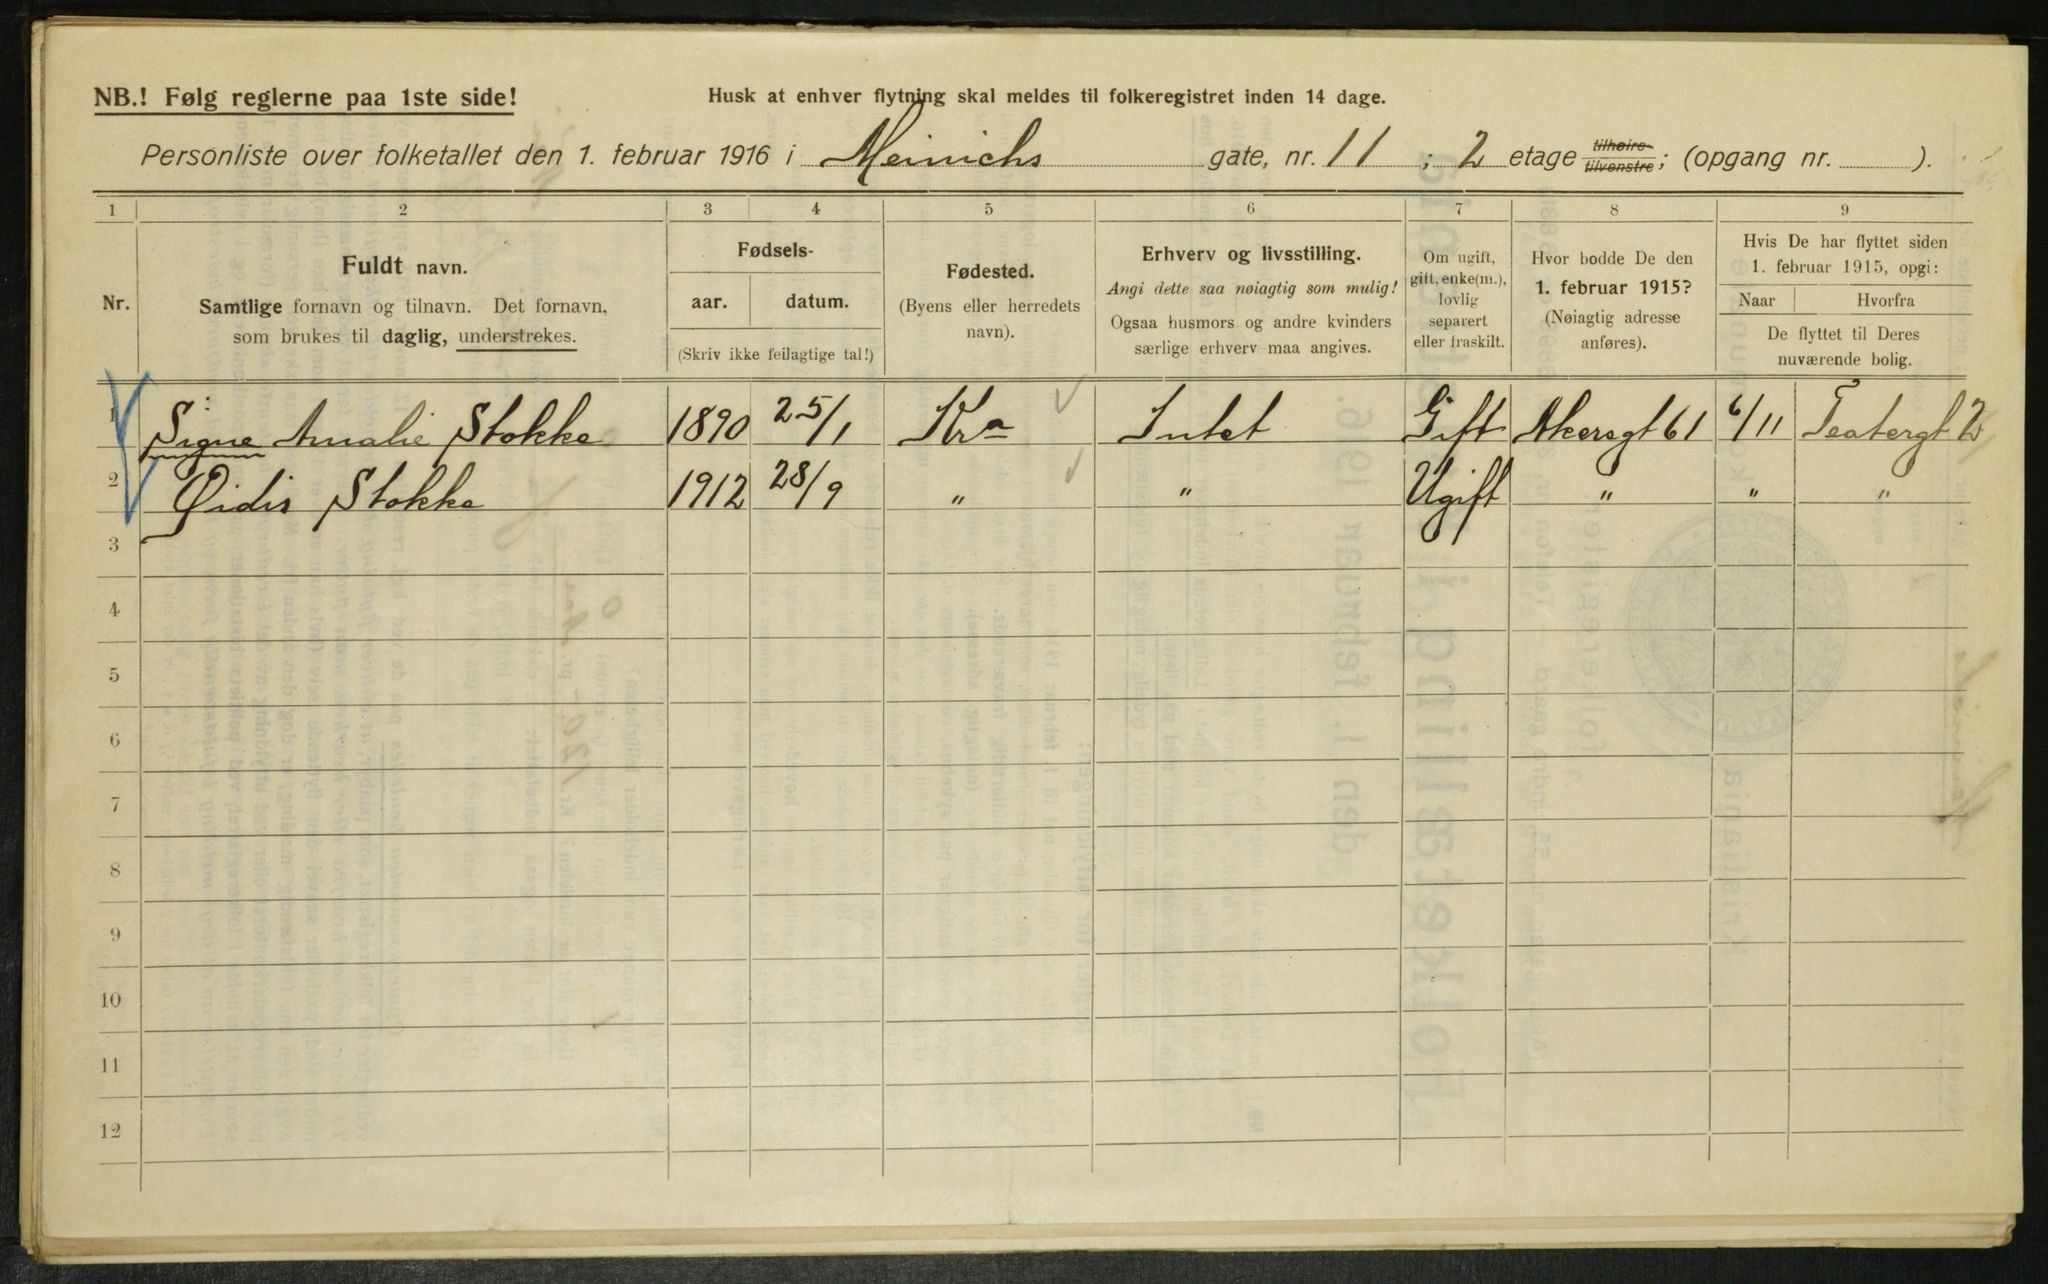 NB.! Følg reglerne paa 1ste side!
Husk at enhver flytning skal meldes til folkeregistret inden 14 dage.
Personliste over folketallet den 1. februar 1916 i Meinichs gate, nr. 11 ; 2 etage tilhøire tilvenstre; (opgang nr. ).
1 2 3 4 5 6 7 8 9
Nr.
Fuldt navn.
Samtlige fornavn og tilnavn. Det fornavn,
som brukes til daglig, understrekes.
Fødsels-
aar. datum.
(Skriv ikke feilagtige tal!)
Fødested.
(Byens eller herredets
navn).
Erhverv og livsstilling.
Angi dette saa nøiagtig som mulig!
Ogsaa husmors og andre kvinders
særlige erhverv maa angives.
Om ugift,
gift, enke(m.),
lovlig
separert
eller fraskilt.
Hvor bodde De den
1. februar 1915?
(Nøiagtig adresse
anføres).
Hvis De har flyttet siden
1. februar 1915, opgi:
Naar Hvorfra
De flyttet til Deres
nuværende bolig.
1 Signe Amalie Stokke 1890 25/1 Kra Intet Gift Akersgt 61 6/11 Teatergt 2
2 Øidis Stokke 1912 28/9 " " Ugift " " "
3
4
5
6
7
8
9
10
11
12